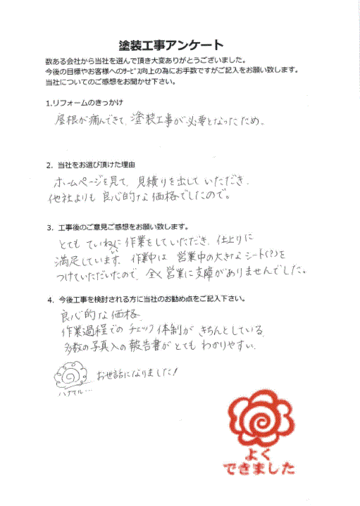 塗装工事アンケート
数ある会社から当社を選んで頂き大変ありがとうございました。
今後の目標やお客様へのｻｰﾋﾞｽ向上の為にお手数ですがご記入をお願い致します。
当社についてのご感想をお聞かせ下さい。
1.リフォームのきっかけ
屋根が痛んできて、塗装工事が必要となったため。
2．当社をお選び頂けた理由
ホームページを見て、見積りを出していただき、
他社よりも良心的な価格でしたので。
3．工事後のご意見ご感想をお願い致します。
とてもていねいに作業をしていただき、仕上りに
満足しています。作業中は営業中の大きなシート(?)を
つけていただいたので、全く営業に支障がありませんでした。
4．今後工事を検討される方に当社のお勧め点をご記入下さい。
良心的な価格
作業過程でのチェック体制がきちんとしている
多数の写真入の報告書がとてもわかりやすい
お世話になりました！
ハナマル
よく
できました